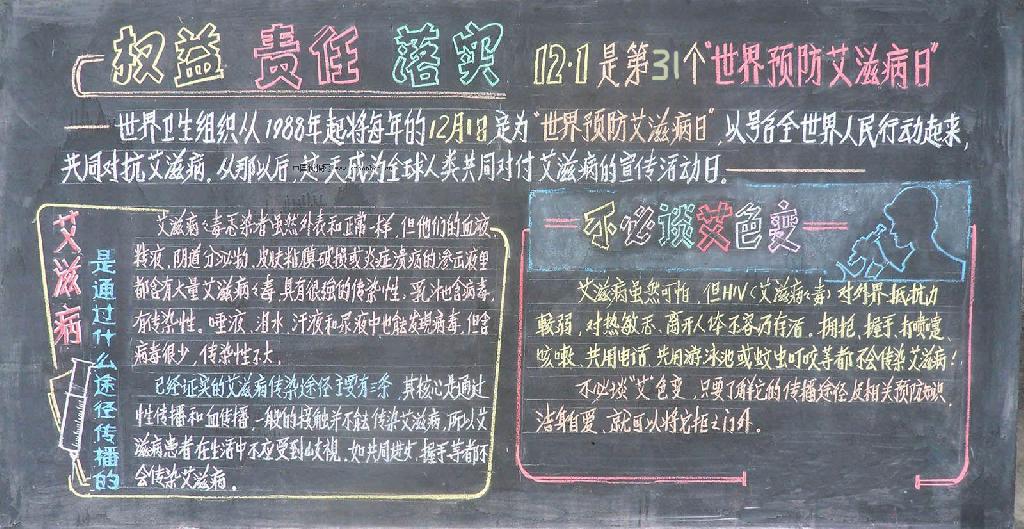 权益 责任 落实
12·1是第31个"世界预防艾滋病日"
世界卫生组织从1988年起将每年的12月1日定为"世界预防艾滋病日",以号召全世界人民行动起来,
共同对抗艾滋病.从那以后,这天成为全球人类共同对付艾滋病的宣传活动日.
艾滋病
是通过什么途径传播的
艾滋病病毒感染者虽然外表和正常一样,但他们的血液、
精液、阴道分泌物、皮肤粘膜破损或炎症溃疡的渗出液里
都含有大量艾滋病病毒,具有很强的传染性.乳汁也含病毒,
有传染性.唾液、泪水、汗液和尿液中也能发现病毒,但含
病毒很少,传染性不大.
已经证实的艾滋病传染途径主要有三条,其核心是通过
性传播和血传播,一般的接触并不能传染艾滋病,所以艾
滋病患者在生活中不应受到歧视.如共同进餐、握手等都不
会传染艾滋病.
不必谈艾色变
艾滋病虽然可怕,但HIV(艾滋病病毒)对外界抵抗力
较弱,对热敏感、离开人体不容易存活.拥抱、握手、打喷嚏、
咳嗽、共用电话、共用游泳池或蚊虫叮咬等都不会传染艾滋病!
不必谈"艾"色变,只要了解它的传播途径及相关预防知识,
洁身自爱、就可以将它拒之门外.